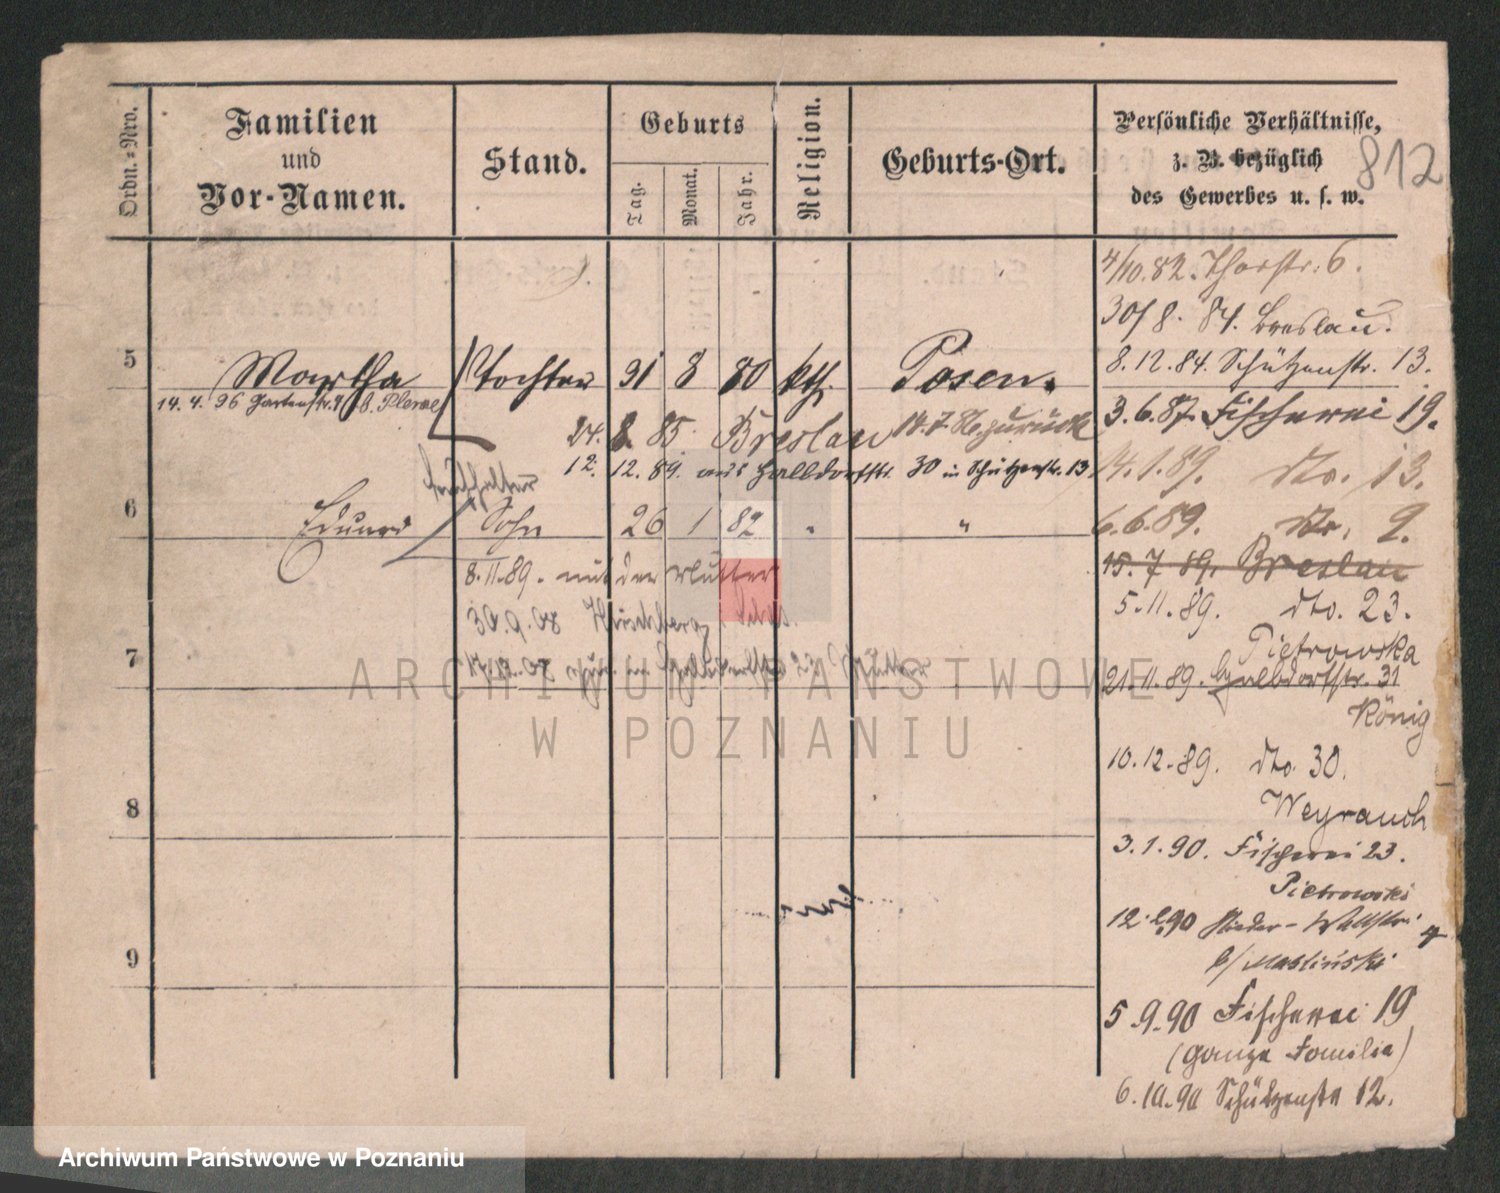 Ordn.-Nro.
Familien
und
Vor-Namen.
Stand.
Geburts
Tag.
Monat.
Jahr.
Religion.
Geburts-Ort.
Persönliche Verhältnisse,
z. B. bezüglich
des Gewerbes u. s. w.
812
4/10.82. Thorstr. 6.
30/8. 84. Breslau.
8.12.84. Schützenstr. 13.
5 Martha Tochter 31 8 80 kth. Posen.
14. 4. 96 Gartenstr. b.
3.6.87. Fischerei 19.
24. 8 85 Breslau 14.7.86. zurück
14.1.89. dto. 13.
12. 12. 89. aus Halbdorfstr. 30 in Schützenstr. 13
6 Eduard Sohn 26 1 82 " "
6.6.89. dto. 9.
8.11.89. mit der Mutter
15.7 89. Breslau
5.11.89. dto. 23.
Pietrowska
7
21.11.89. Halbdorfstr. 31
König
10.12.89. dto. 30.
Weyrauch
8
3.1.90. Fischerei 23.
Pietrowski
12. 90 Wallstr. 4
b/ Masliński
9
5.9.90 Fischerei 19
(ganze Familie)
6.10.90 Schützenstr 12.
ARCHIWUM PAŃSTWOWE
W POZNANIU
Archiwum Państwowe w Poznaniu